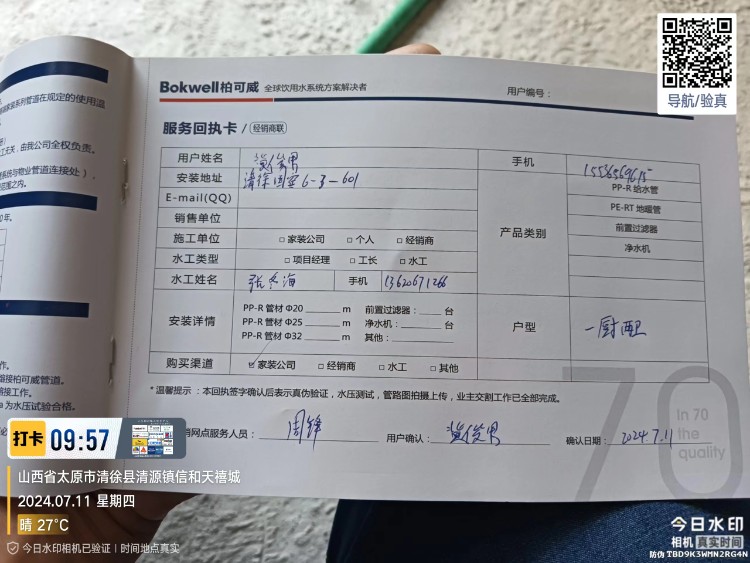 导航/验真
装家装系列管道在规定的使用温
工天，由我公司全权负责。
系统与物业管道连接处），
Bokwell柏可威 全球饮用水系统方案解决者
用户编号：
服务回执卡 / 经销商联
用户姓名
手机 15536569615
安装地址 清徐国宝6-3-601
产品类别
PP-R 给水管
PE-RT 地暖管
前置过滤器
净水机
E-mail(QQ)
销售单位
施工单位 □ 家装公司 □ 个人 □ 经销商
水工类型 □ 项目经理 □ 工长 □ 水工
水工姓名 张冬海 手机 13620671266
安装详情
PP-R 管材 Φ20 ______ m 前置过滤器：____ 台
PP-R 管材 Φ25 ______ m 净水机：______ 台
PP-R 管材 Φ32 ______ m 其他：
户型 一厨两卫
购买渠道 ☑ 家装公司 □ 经销商 □ 水工 □ 其他
* 温馨提示：本回执签字确认后表示真伪验证，水压测试，管路图拍摄上传，业主交割工作已全部完成。
熔接柏可威管道。
熔接工作。
a 为水压试验合格。
70
In 70
the
quality
销网点服务人员： 周锋 用户确认： 确认日期： 2024.7.11
打卡 09:57
山西省太原市清徐县清源镇信和天禧城
2024.07.11 星期四
晴 27°C
今日水印相机已验证 | 时间地点真实
今日水印
相机 真实时间
防伪 TBD9K3WMN2RG4N